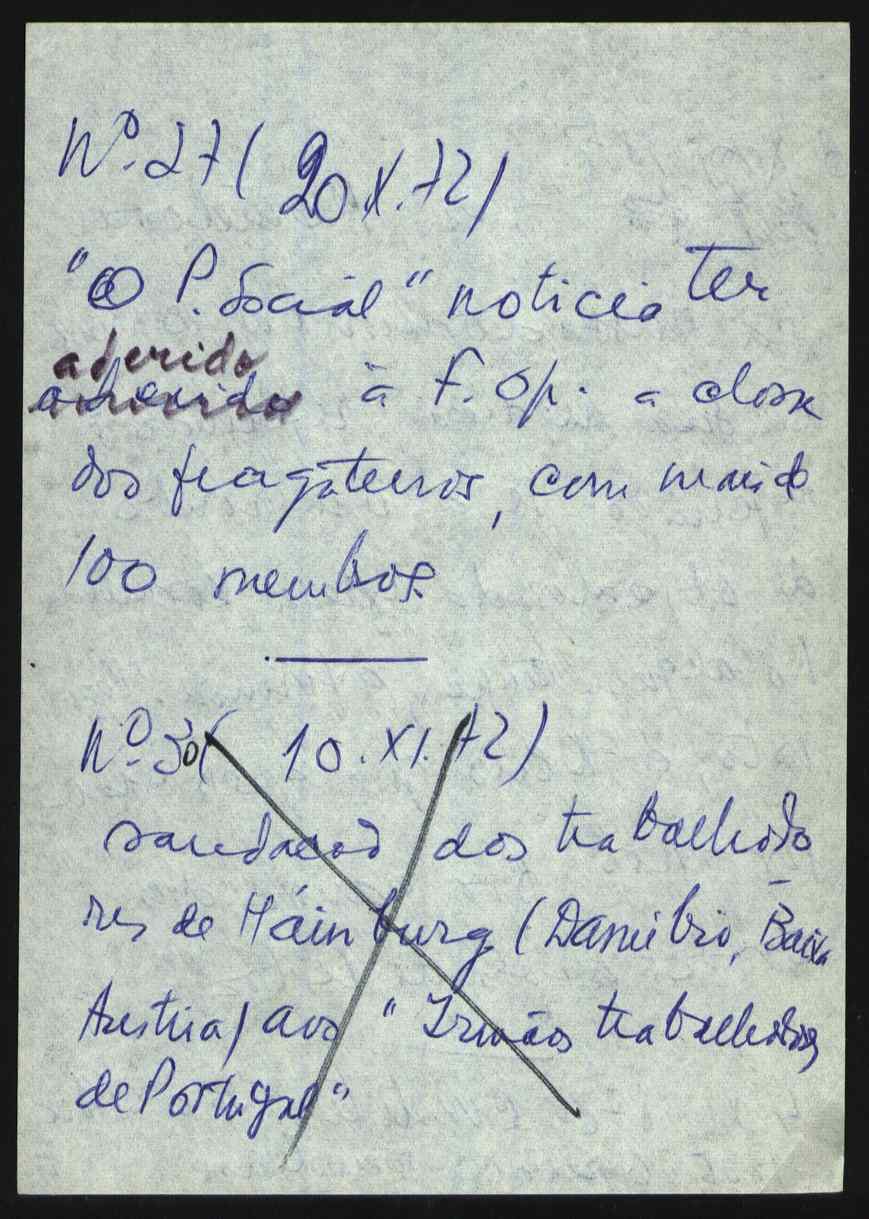 Nº. 27 ( 20.X.72)
"O P. Social" noticia ter
aderido
aderido à F. Op. a classe
dos fragateiros, com mais de
100 membros.
Nº. 30 ( 10.XI.72)
saudação dos trabalhado
res de Háinburg (Danúbio, Baixa
Austria) aos "Irmãos trabalhadores
de Portugal"